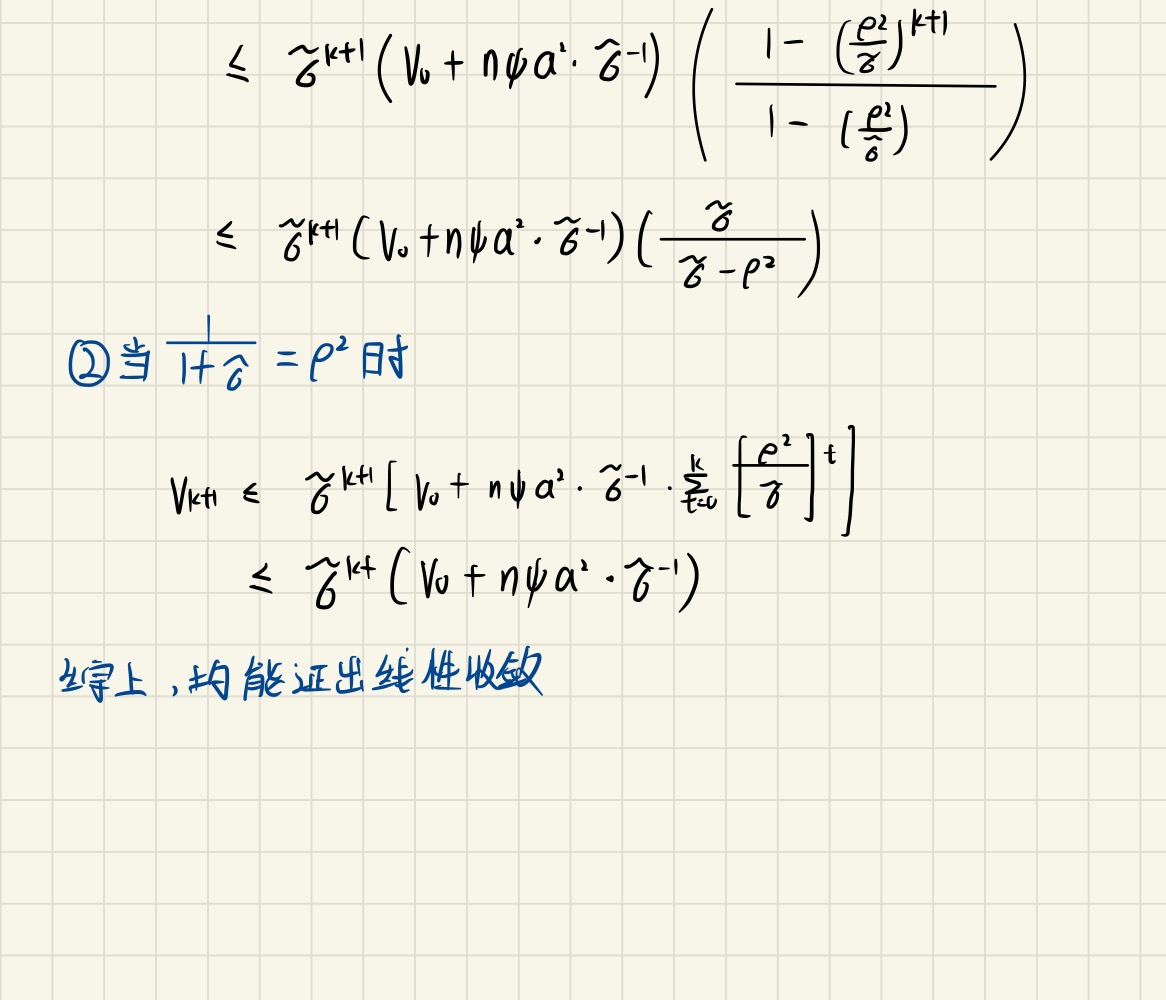 ≤ σ̃^{k+1} (V₀ + nψa² · σ̃^{-1}) ( (1 - (ρ²/σ̃)^{k+1}) / (1 - (ρ²/σ̃)) )
≤ σ̃^{k+1} (V₀ + nψa² · σ̃^{-1}) ( σ̃ / (σ̃ - ρ²) )
② 当 1/(1+σ̂) = ρ² 时
V_{k+1} ≤ σ̃^{k+1} [ V₀ + nψa² · σ̃^{-1} · Σ_{t=0}^{k} [ρ²/σ̃]^t ]
≤ σ̃^{k+} (V₀ + nψa² · σ̃^{-1})
综上，均能证出线性收敛